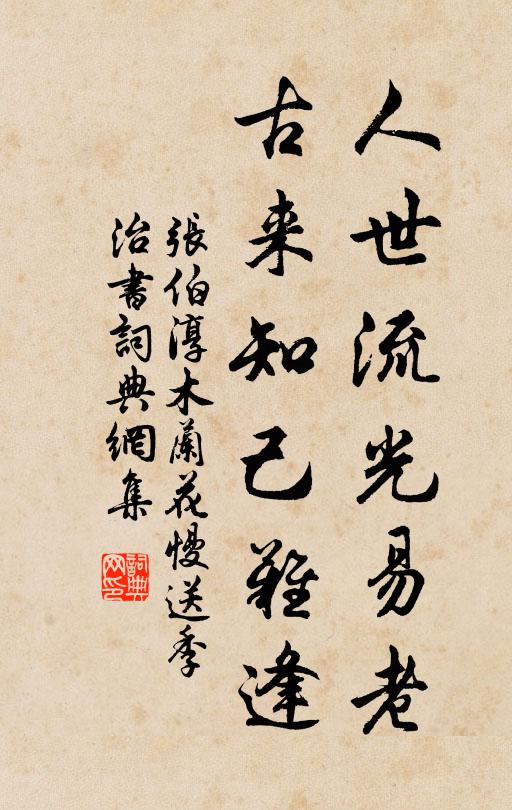 人世流光易老
古来知己難逢
張伯淳木蘭花慢送季
治書詞典網集
詞典
网印